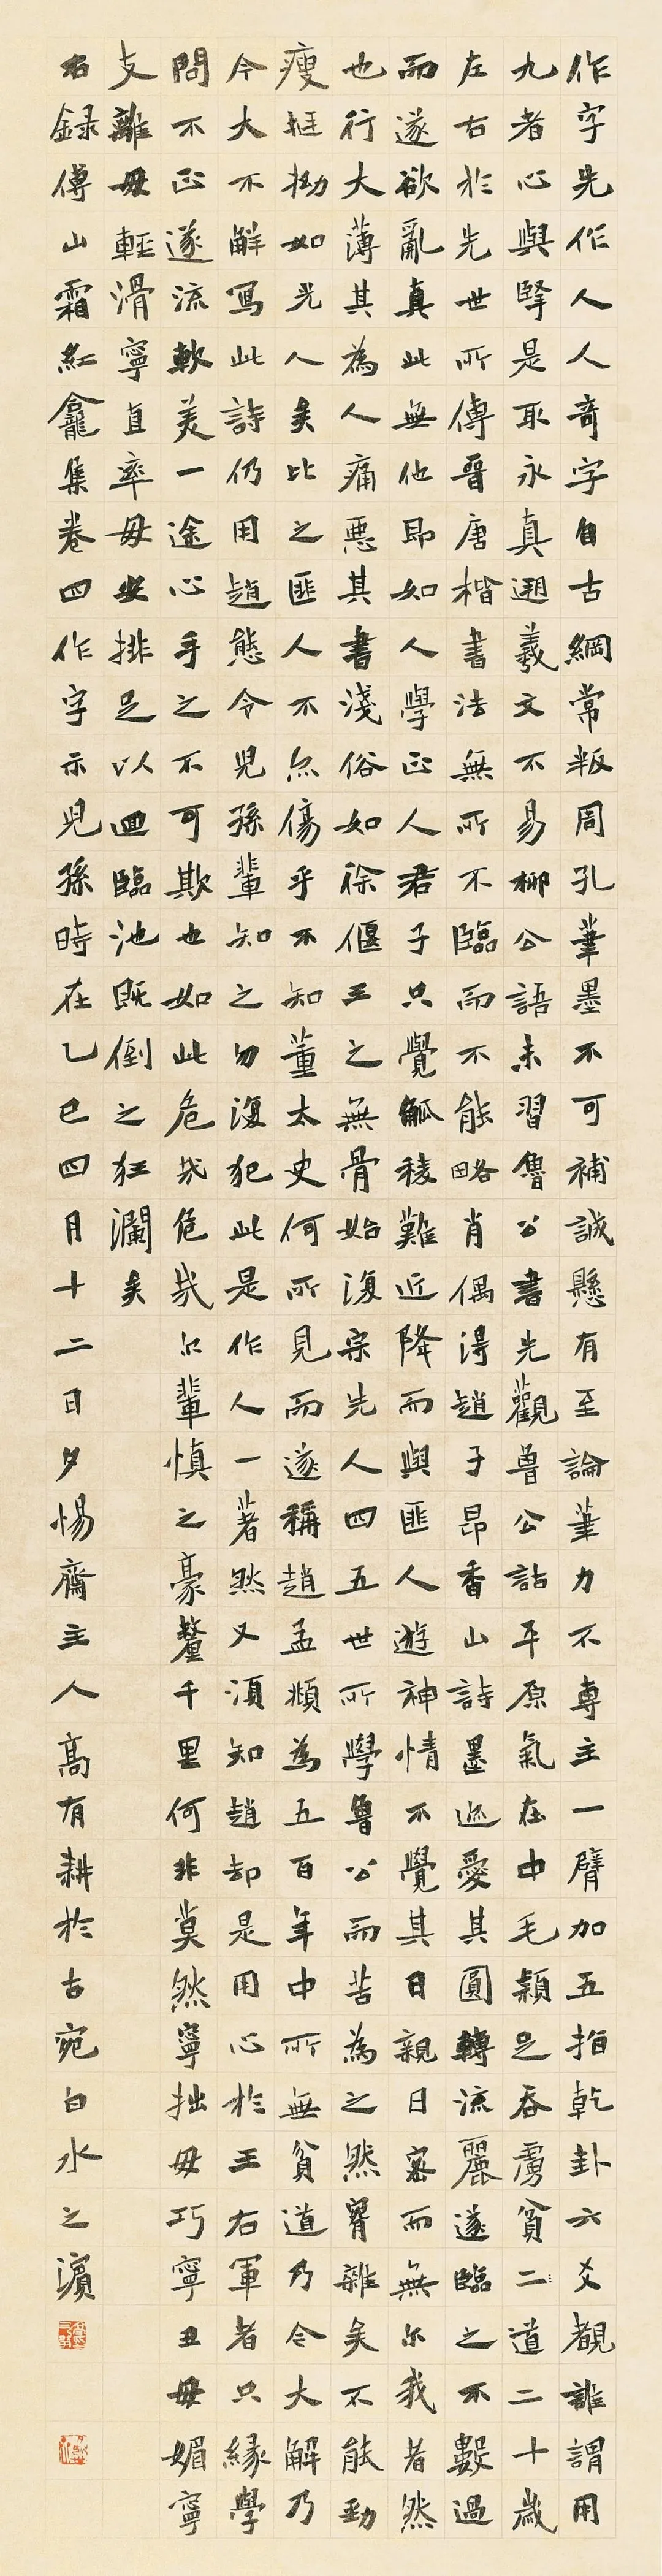 作字先作人人奇字自古綱常叛周孔筆墨不可補誠懸有至論筆力不專主一臂加五指乾卦六爻覩誰謂用
九者心與掔是取永真遡羲文不易柳公語未習魯公書先觀魯公詁平原氣在中毛穎足吞虜貧二道二十歲
左右於先世所傳晉唐楷書法無所不臨而不能略肖偶得趙子昂香山詩墨迹愛其圓轉流麗遂臨之不數過
而遂欲亂真此無他即如人學正人君子只覺觚稜難近降而與匪人遊神情不覺其日親日密而無尔我者然
也行大薄其為人痛惡其書淺俗如徐偃王之無骨始復宗先人四五世所學魯公而苦為之然腎雜矣不能勁
瘦挺拗如先人矣比之匪人不亦傷乎不知董太史何所見而遂稱趙孟頫為五百年中所無貧道乃今大解乃
今大不解寫此詩仍用趙態令兒孫輩知之勿復犯此是作人一著然又須知趙却是用心於王右軍者只緣學
問不正遂流軟美一途心手之不可欺也如此危哉危哉尔輩慎之豪釐千里何非莫然寧拙毋巧寧丑毋媚寧
支離毋輕滑寧直率毋安排足以迴臨池既倒之狂瀾矣
右録傅山霜紅龕集卷四作字示兒孫時在乙巳四月十二日夕惕齋主人高有耕於古宛白水之濱